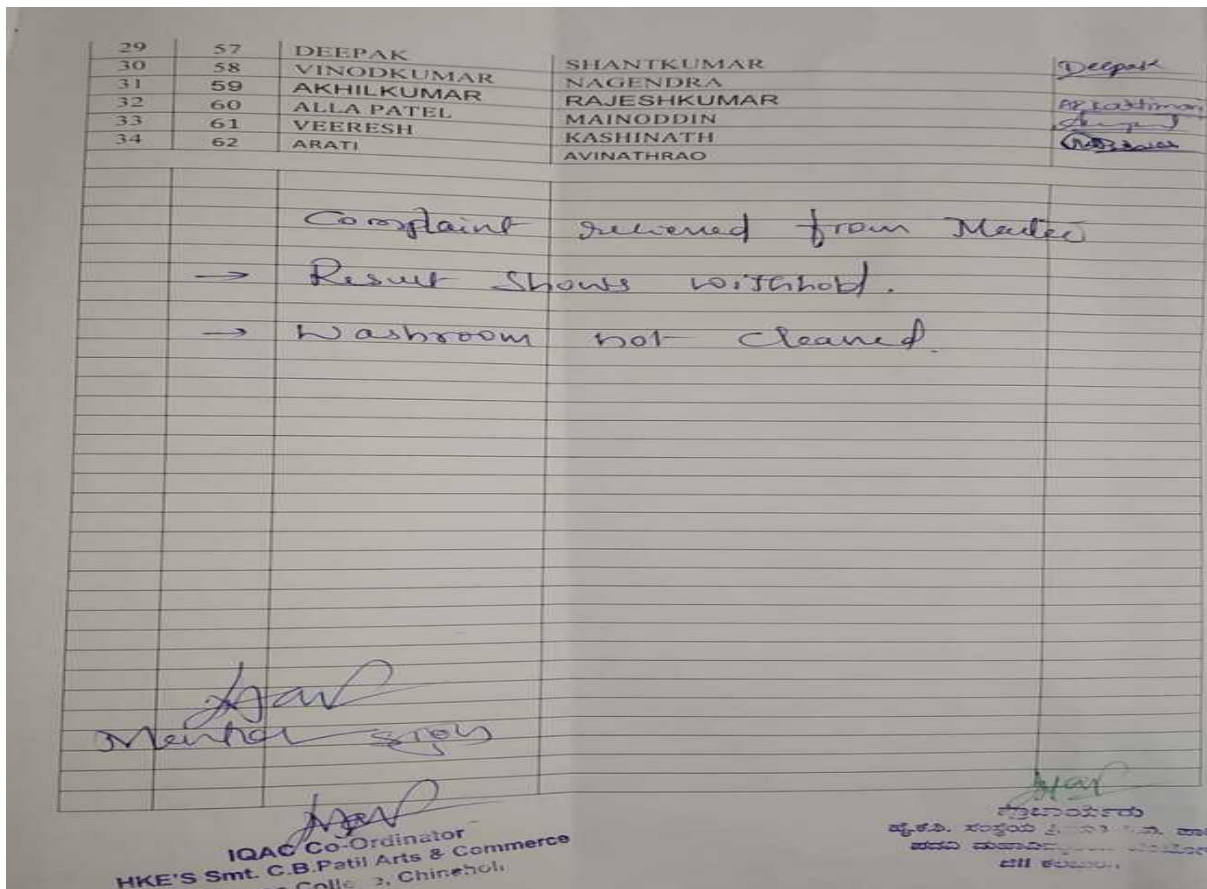 29 57 DEEPAK SHANTKUMAR Deepak
30 58 VINODKUMAR NAGENDRA
31 59 AKHILKUMAR RAJESHKUMAR
32 60 ALLA PATEL MAINODDIN
33 61 VEERESH KASHINATH
34 62 ARATI AVINATHRAO
Complaint from
→ Result Shows withhold.
→ Washroom not cleaned.
Mentor sign
IQAC Co-Ordinator
HKE'S Smt. C.B.Patil Arts & Commerce
Chincholi